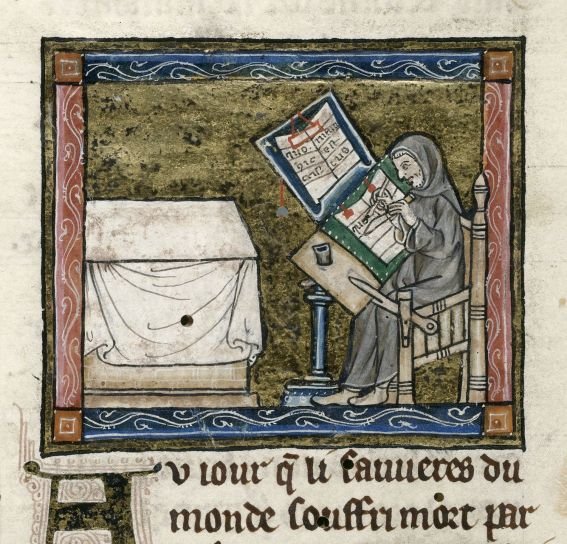 Av iour q̃ li sauueres du
monde souffri mort par